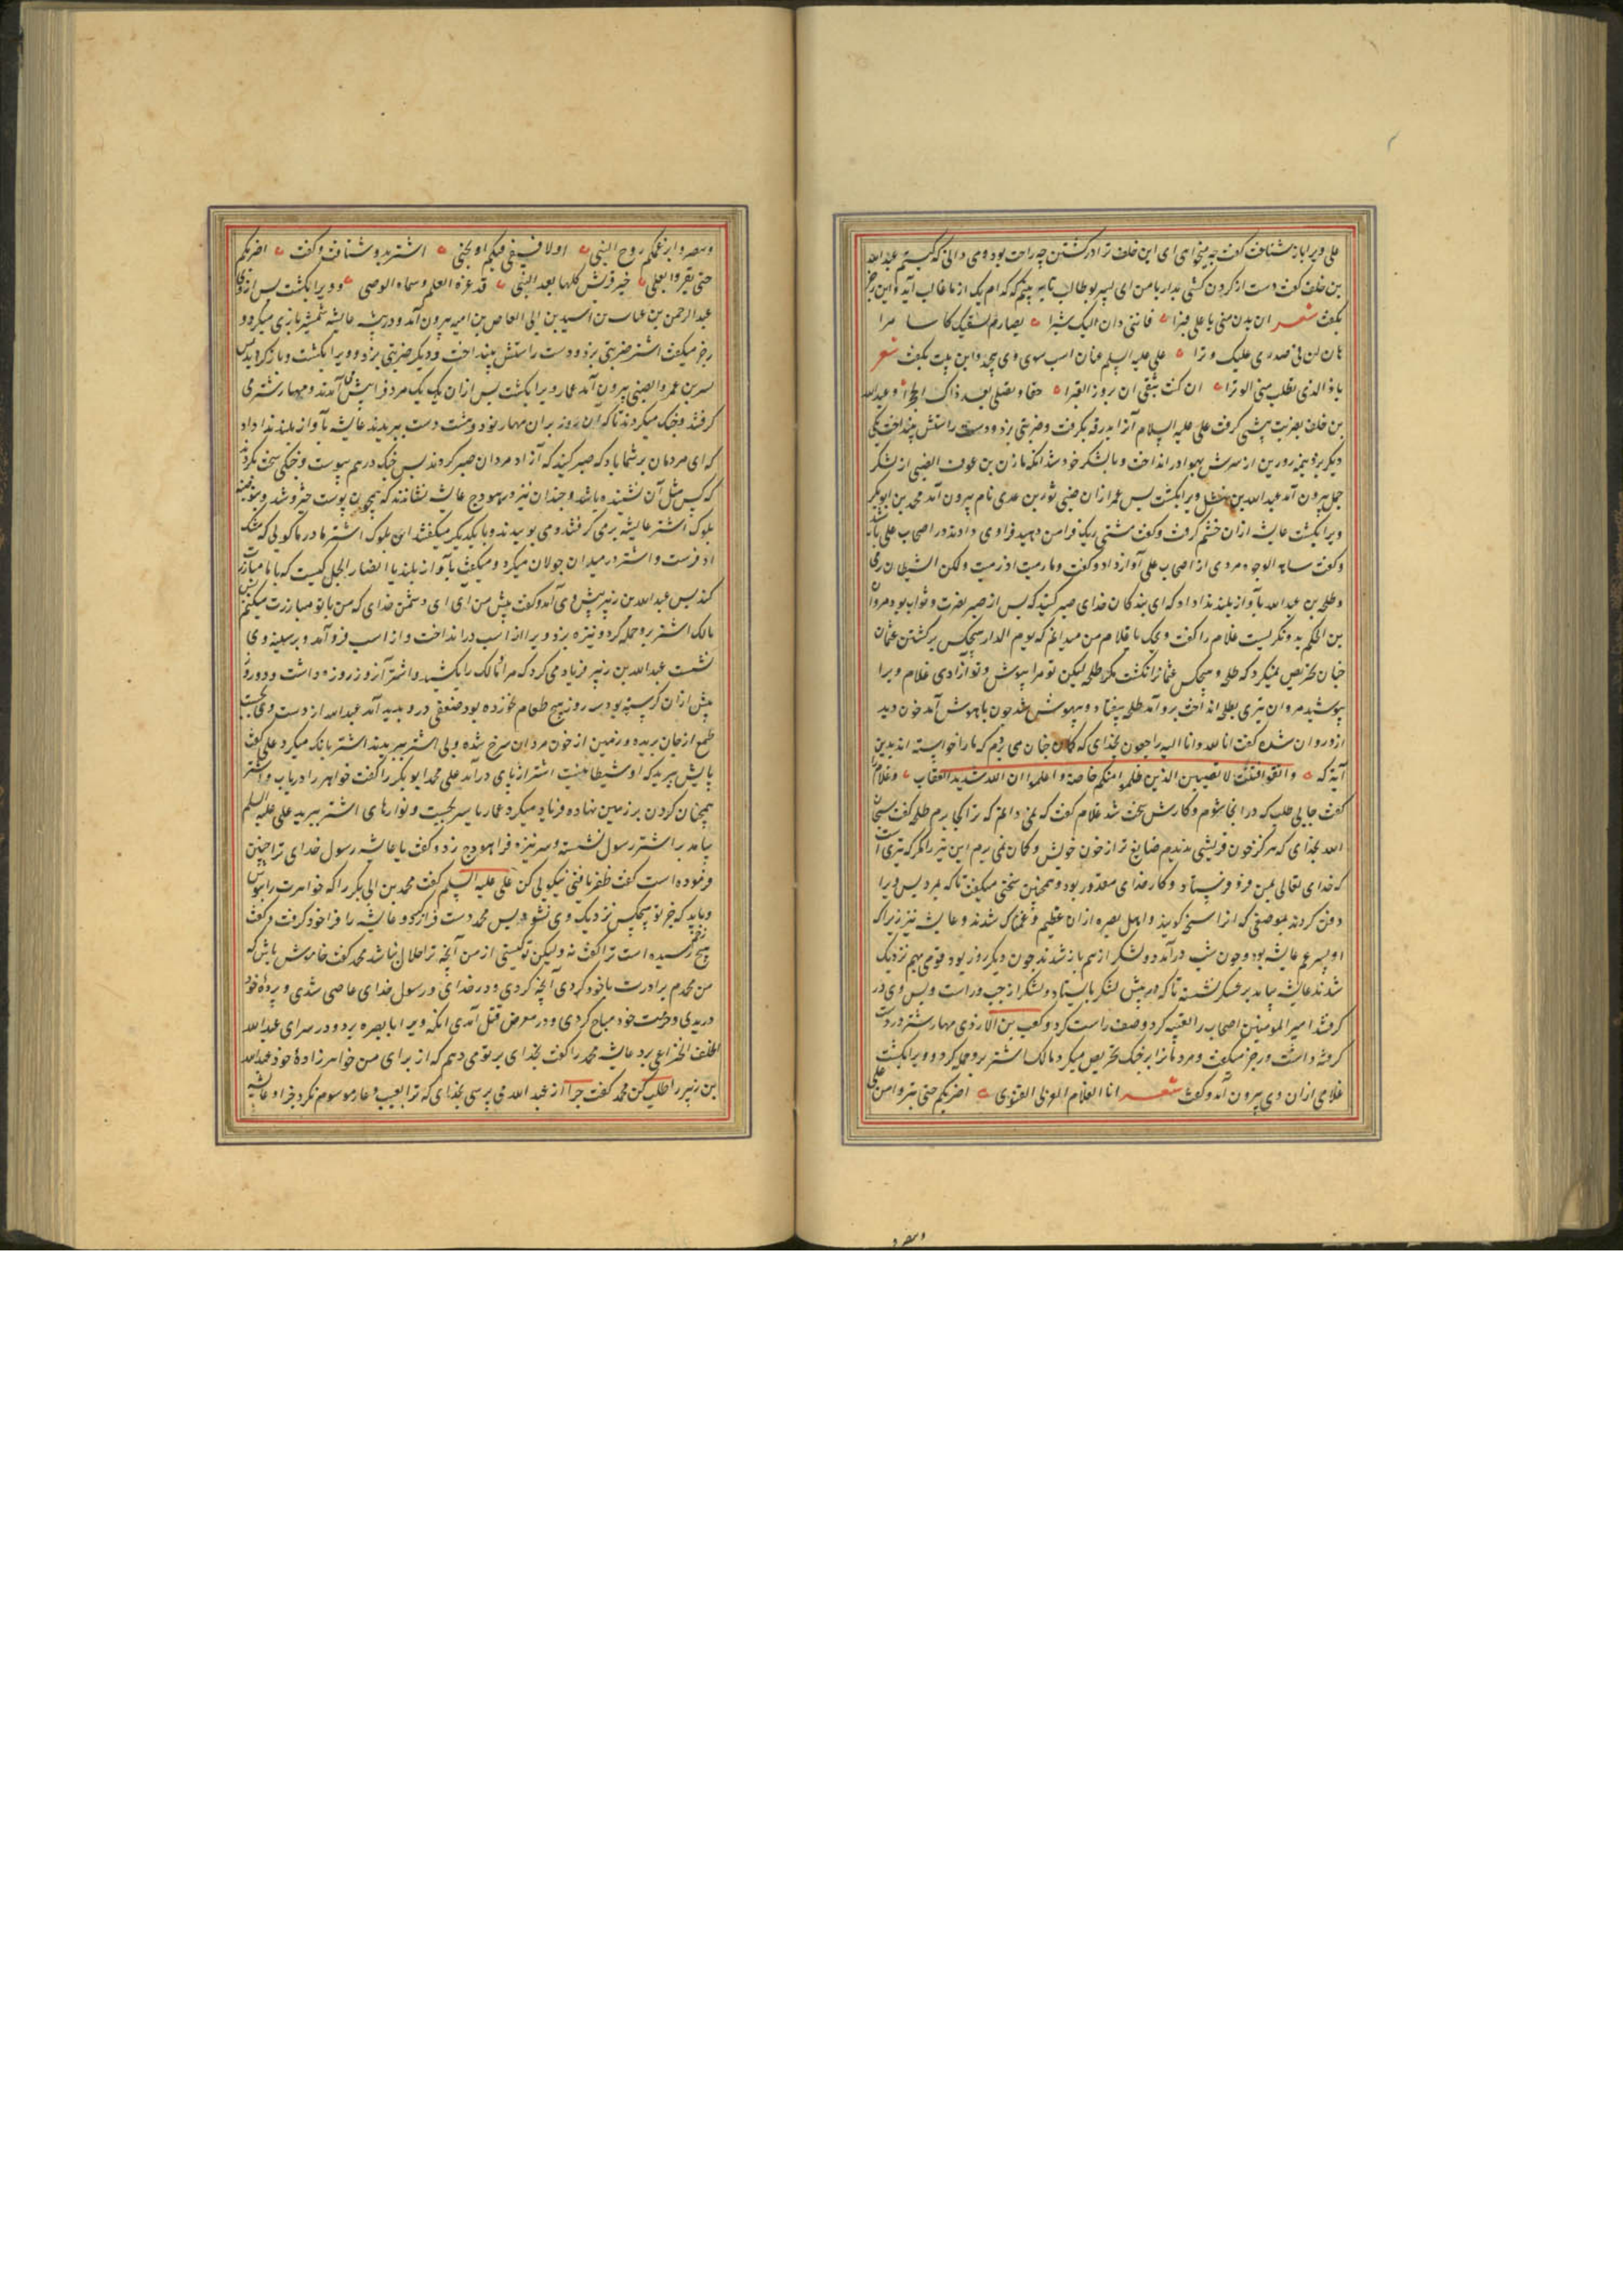 علی ویرا باز شناخت گفت چه میخواهی ای ابن خلف ترا در کشتن چه راحت بود وی دانی که کیستم عبدالله
بن خلف گفت دست از کردن کشی بدار با من ای پسر بوطالب تا ببینم که کدام یک از ما غالب آید و این رجز
بگفت شعر ان بدن منی یا علی فترا فاننی دان الیک شبرا بصارم یسقیک کاسا مرا
ها ان فی صدری علیک وترا علی علیه السلم عنان اسب سوی وی پیچید و این بیت بگفت شعر
یا ذا الذی تطلب منی الوترا ان کنت تبغی ان تزور القبرا حقا وتصلی بعد ذاک الجمرا و عبدالله
بن خلف بضربت پیشی گرفت علی علیه السلام آنرا بدرقه بگرفت و ضربتی بزد و دست راستش بینداخت یکی
دیگر بزد نیمه زورین از سرش بهوا در انداخت و با لشکر خود شد آنکه مازن بن عوف الضبی از لشکر
جمل بیرون آمد عبدالله بن نهشل ویرا بکشت پس عمرازان ضبی ثور بن عدی نام بیرون آمد محمد بن ابوبکر
ویرا بکشت عایشه ازان خشم گرفت و گفت مشتی ریگ فرا من دهید فرا وی دادند در اصحاب علی پاشید
و گفت شاهت الوجوه مردی از اصحاب علی آواز داد و گفت وما رمیت اذ رمیت ولکن الشیطان رمی
و طلحه بن عبدالله بآواز بلند ندا داد که ای بندکان خدای صبر کنید که پس از صبر نصرت و ثواب بود مروان
بن الحکم بدو نکریست غلام را گفت ویحک یا غلام من میدانم که یوم الدار هیچکس بر کشتن عثمان
چنان تحریص نمیکرد که طلحه و هیچکس عثمانرا نکشت مکر طلحه لیکن تو مرا بپوش و تو آزادی غلام ویرا
بپوشید مروان تیری بطلحه انداخت برو آمد طلحه بیفتاد و بیهوش شد چون باهوش آمد خون دید
ازو روان شده گفت انا لله وانا الیه راجعون بخدای که کمان چنان می برم که ما را خواسته اند بدین
آیه که واتقوا فتنة لا تصیبن الذین ظلموا منکم خاصة واعلموا ان الله شدید العقاب و غلام را
گفت جایی طلب که در انجا شوم و کارش سخت شد غلام گفت که نمی دانم که ترا کجا برم طلحه گفت سبحان
الله بخدای که هرکز خون قریشی ندیدم ضایع تر از خون خویش و کمان نمی برم این تیر را مکر که تیری است
که خدای تعالی بمن فرو فرستاد و کار خدای مقدور بود و همچنین سخنی میگفت تا که بمرد پس ویرا
دفن کردند بموضعی که انرا سبخه کویند و اهل بصره ازان عظیم و غمناک شدند و عایشه نیز زیرا که
او پسر عم عایشه بود و چون شب درآمد دو لشکر از هم باز شدند چون دیگر روز بود قومی بهم نزدیک
شدند عایشه بیامد بر عسکر نشسته تا که در پیش لشکر بایستاد و لشکر از چپ و راست و پس وی در
گرفتند امیر المومنین اصحاب را تعبیه کرد و صف راست کرد و کعب بن الازدی مهار شتر در دست
گرفته داشت و رجز میگفت و مردمانرا بر جنک تحریص میکرد مالک اشتر برو حمله کرد و ویرا بکشت
غلامی ازان وی بیرون آمد و گفت شعر انا الغلام الهزلی الغنوی اضربکم حتی تبروا من علی
ونصروا ابن عمکم روح النبی اولا فسیفی فیکم او یجنی اشتر بدو شتافت و گفت اضربکم
حتی تقروا بعلی خیر قریش کلها بعد النبی قد عزه العلم وسماه الوصی و ویرا بکشت پس از وی
عبدالرحمن بن عتاب بن اسید بن ابی العاص بن امیه بیرون آمد و در پیش عایشه شمشیر بازی میکرد و
رجز میگفت اشتر ضربتی بزد و دست راستش بینداخت و دیگر ضربتی بزد و ویرا بکشت و باز کردید پس
بسر بن عمرو الضبی بیرون آمد عمار ویرا بکشت پس ازان یک یک مرد فرا پیش می آمدند و مهار شتر می
گرفتند و جنک میکردند تا که آن روز بران مهار نود و هشت دست ببریدند عایشه بآواز بلند ندا داد
که ای مردمان بر شما باد که صبر کنید که آزاد مردان صبر کردند پس جنک در هم پیوست و جنکی سخت بکردند
که کس مثل آن نشنیده باشد و چندان تیر در هودج عایشه نشاندند که همچون پوست خیزو شد و بنو ضبه
بلوک اشتر عایشه برمی گرفتند و می بوییدند و با یکدیگر میگفتند این بلوک اشتر مادر ما گویی که مشک
اذفرست و اشتر در میدان جولان میکرد و میگفت بآواز بلند یا انصار الجمل کیست که با ما مبارزت
کند پس عبدالله بن زبیر پیش وی آمد و گفت پیش من آی ای دشمن خدای که من با تو مبارزت میکنم
مالک اشتر برو حمله کرد و نیزه بزد و ویرا از اسب در انداخت و از اسب فرو آمد و بر سینه وی
نشست عبدالله بن زبیر فریاد می کرد که مرا و مالک را بکشید و اشتر آن روز روزه داشت و دو روز
پیش ازان کرسنه بود سه روز هیچ طعام نخورده بود ضعفی درو پدید آمد عبدالله از دست وی بجست
طمع از جان بریده و زمین از خون مردان سرخ شده و پی اشتر ببریدند اشتر بانک میکرد علی گفت
پایش ببرید که او شیطانیست اشتر از پای درآمد علی محمد ابوبکر را گفت خواهر را دریاب و اشتر
همچنان گردن بر زمین نهاده فریاد میکرد عمار یاسر بجست و نوارهای اشتر ببرید علی علیه السلم
بیامد بر اشتر رسول نشسته و سر نیزه فرا هودج زد و گفت یا عایشه رسول خدای ترا چنین
فرموده است گفت ظفر یافتی نیکویی کن علی علیه السلم گفت محمد بن ابی بکر را که خواهرت را بپوش
و باید که جز تو هیچکس نزدیک وی نشود پس محمد دست فراز کرد و عایشه را فرا خود گرفت و گفت
هیچ زخم رسیده است ترا گفت نه ولیکن تو کیستی از من آنچه ترا حلال نباشد محمد گفت خاموش باش که
من محمدم برادرت با خود کردی آنچه کردی و در خدای و رسول خدای عاصی شدی و پرده خود
دریدی و حرمت خود مباح کردی و در معرض قتل آمدی انکه ویرا ببصره برد و در سرای عبدالله
الخلف الخزاعی برد عایشه محمد را گفت بخدای بر تو می دهم که از برای من خواهر زاده خود عبدالله
بن زبیر را طلب کن محمد گفت چرا از عبد الله می پرسی بخدای که ترا بعیب و عار موسوم نکرد جز او عایشه
ونصرو